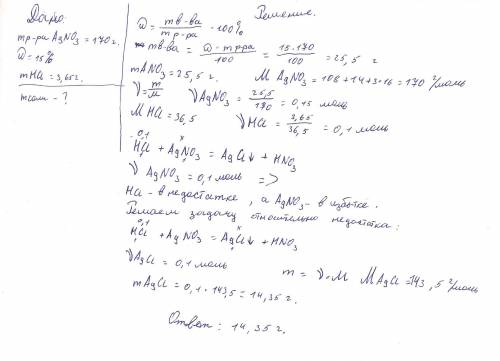 Дано:
mр-ра AgNO₃ = 170 г.
ω = 15%
mHCl = 3,65 г.
mсоли - ?
Решение.
ω = mв-ва / mр-ра · 100%
mв-ва = ω · mр-ра / 100 = 15 · 170 / 100 = 25,5 г
mANO₃ = 25,5 г. M AgNO₃ = 108 + 14 + 3·16 = 170 г/моль
ν = m/M ν AgNO₃ = 25,5 / 170 = 0,15 моль
M HCl = 36,5 ν HCl = 3,65 / 36,5 = 0,1 моль
0,1 x
HCl + AgNO₃ = AgCl↓ + HNO₃
1 1
ν AgNO₃ = 0,1 моль =>
HCl - в недостатке, а AgNO₃ - в избытке.
Решаем задачу относительно недостатка:
0,1 x
HCl + AgNO₃ = AgCl↓ + HNO₃
1 1
ν AgCl = 0,1 моль m = ν · M M AgCl = 143,5 г/моль
m AgCl = 0,1 · 143,5 = 14,35 г.
Ответ: 14,35 г.